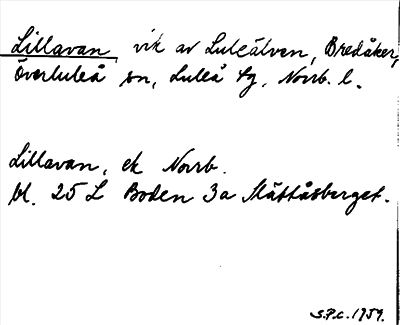 Lillavan, vik av Luleälven, Bredåker,
Överluleå sn, Luleå tg, Norrb. l.
Lillavan, ek Norrb.
bl. 25 L Boden 3a Måttåsberget.
S.P.c. 1959.